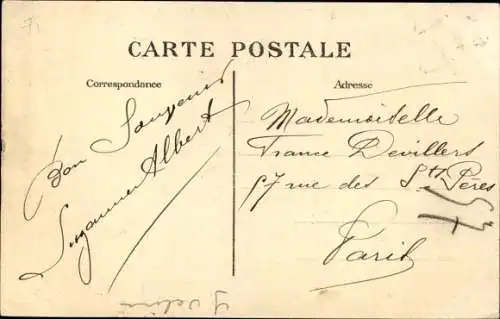 CARTE POSTALE
Correspondance
Bon Souvenir
Suzanne Albert
Adresse
Mademoiselle
France Devillers
57 rue des Sts Pères
57
Paris